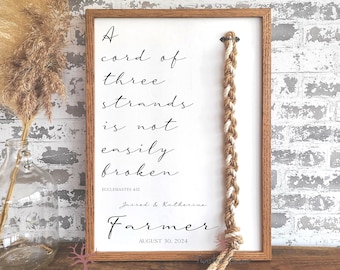 A
cord of
three
strands
is not
easily
broken
ECCLESIASTES 4:12
Jarrod & Katherine
Farmer
AUGUST 30, 2024